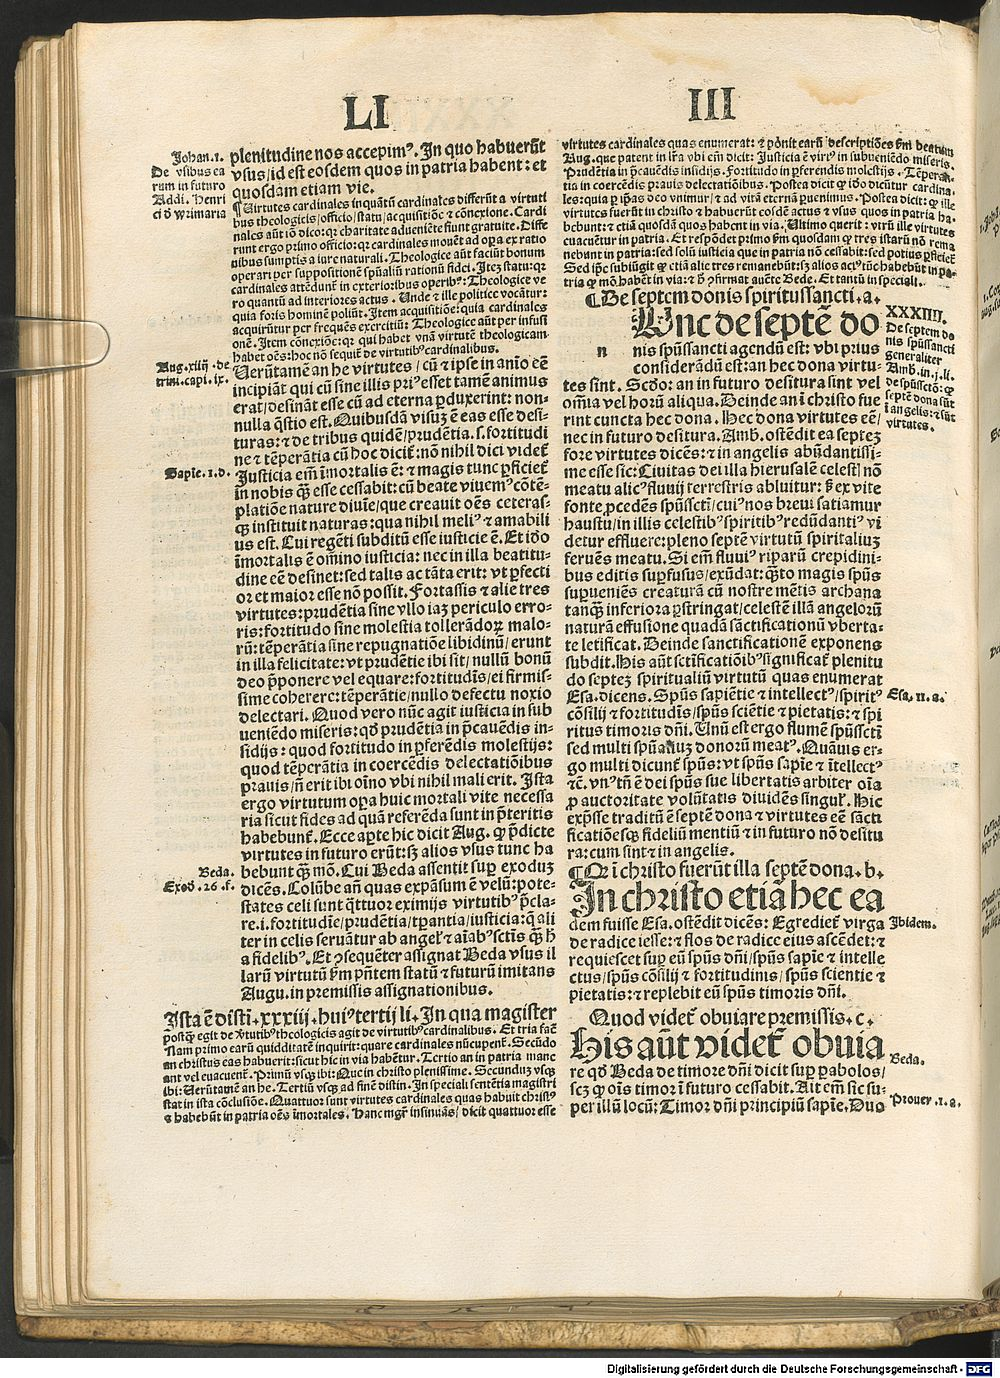 LI
III
Johan.1.
De vsibus ea
rum in futuro
Addi. Henri
ci d̕ vrimaria
plenitudine nos accepimꝰ. In quo habuerūt
vsus/id est eosdem quos in patria habent: et
quosdam etiam vie.
¶Uirtutes cardinales inquātū cardinales differūt a virtuti
bus theologicis/officio/statu/acquisitiōe ⁊ cōnexione. Cardi
nales aūt iō dico: qꝛ charitate adueniēte fiunt gratuite. Diffe
runt ergo primo officio: qꝛ cardinales mouēt ad oꝑa ex ratio
nibus sumptis a iure naturali. Theologice aūt faciūt bonum
operari per suppositionem spūaliū rationū fidei. Itē statu: qꝛ
cardinales attēdunt in exterioribus operibꝰ: Theologice ve
ro quantū ad interiores actus. Unde ⁊ ille politice vocātur:
quia foris hominē poliūt. Item acquisitiōe: quia cardinales
acquirūtur per frequēs exercitiū: Theologice aūt per infusi
onē. Item cōnexiōe: qꝛ qui habet vnā virtutē theologicam
habet oēs: hoc nō sequit̄ de virtutibꝰ cardinalibus.
Aug.xiiij.de
trini.capi.ix.
Uerūtamē an he virtutes/cū ⁊ ipse in aīo eē
incipiāt qui cū sine illis priꝰ esset tamē animus
erat/desināt esse cū ad eterna ꝑduxerint: non-
nulla q̄stio est. Quibusdā visuꝫ ē eas esse desi-
turas: ⁊ de tribus quidē/prudētia.s.fortitudi
ne ⁊ tēperātia cū hoc dicit̄: nō nihil dici videt̄
Sapie.1.d.
Justicia em̄ īmortalis ē: ⁊ magis tunc ꝑficiet̄
in nobis q̄ꝫ esse cessabit: cū beate viuemꝰ cōtē-
platiōe nature diuīe/que creauit oēs ceteras-
qꝫ instituit naturas: qua nihil meliꝰ ⁊ amabili
us est. Cui regēti subditū esse iusticie ē. Et iō
īmortalis ē om̄ino iusticia: nec in illa beatitu-
dine eē desinet: sed talis ac tāta erit: vt ꝑfecti
or et maior esse nō possit. Fortassis ⁊ alie tres
virtutes: prudētia sine vllo iaꝫ periculo erro-
ris: fortitudo sine molestia tollerādoꝝ malo-
rū: tēperātia sine repugnatiōe libidinū/erunt
in illa felicitate: vt prudētie ibi sit/nullū bonū
deo p̄ponere vel equare: fortitudīs/ei firmis-
sime coherere: tēperātie/nullo defectu noxio
delectari. Quod vero nūc agit iusticia in sub
ueniēdo miseris: qd̕ prudētia in p̄cauēdis in-
sidijs: quod fortitudo in ꝑferēdis molestijs:
quod tēperātia in coercēdis delectatiōibus
prauis/nō erit ibi oīno vbi nihil mali erit. Ista
ergo virtutum oꝑa huic mortali vite necessa
ria sicut fides ad quā referēda sunt in p̄teritis
habebunt̄. Ecce aꝑte hic dicit Aug. ꝙ p̄dicte
virtutes in futuro erūt: sꝫ alios vsus tunc ha
Beda.
Exod̕.26.f.
bebunt q̄ꝫ mō. Cui Beda assentit suꝑ exoduꝫ
dicēs. Colūbe an̄ quas expāsum ē velū: pote-
states celi sunt q̄ttuor eximijs virtutibꝰ p̄cla-
re.i.fortitudīe/prudētia/tꝑantia/iusticia: q̄ ali
ter in celis seruātur ab angelꝭ ⁊ aīabꝰ sctīs q̄ꝫ h̄
a fidelibꝰ. Et ꝯsequēter assignat Beda vsus il
larū virtutū ẜm pn̄tem statū ⁊ futurū imitans
Augu. in premissis assignationibus.
Ista ē disti.xxxiij.huiꝰ tertij li. In qua magister
postqꝫ egit de v̕tutibꝰ theologicis agit de virtutibꝰ cardinalibus. Et tria facit
Nam primo earū quidditatē inquirit: quare cardinales nūcupent̄. Secūdo
an christus eas habuerit: sicut hic in via habētur. Tertio an in patria mane
ant vel euacuent̄. Primū vsqꝫ ibi: Nuc in christo plenissime. Secunduꝫ vsqꝫ
ibi: Uerūtamē an he. Tertiū vsqꝫ ad finē distin. In speciali sentētia magistri
stat in ista cōclusiōe. Quattuor sunt virtutes cardinales quas habuit christꝰ
⁊ habebūt in patria oēs īmortales. Hanc mgr̄ insinuās/dicit quattuor esse
virtutes cardinales quas enumerat: ⁊ pōnit earū descriptiōes ẜm beatum
Aug. que patent in lr̄a vbi em̄ dicit: Justicia ē virtꝰ in subueniēdo miseris.
Prudētia in p̄cauēdis insidijs. Fortitudo in ꝑferendis molestijs. Tēperā-
tia in coercēdis prauis delectatiōibus. Postea dicit ꝙ iō dicūtur cardina-
les: quia ꝑ ip̄as bene viuimꝰ/⁊ ad vitā eternā ꝑuenimus. Postea dicit: ꝙ ille
virtutes fuerūt in christo ⁊ habuerūt eosdē actus ⁊ vsus quos in patria ha-
bebunt: ⁊ etiā quosdā quos habent in via. Ultimo querit: vtrū ille virtutes
euacuētur in patria. Et respōdet primo ẜm quosdam ꝙ tres istarū nō rema
nebunt in patria: sed solū iusticia que in patria nō cessabit: sed potius ꝑficiet̄
Sed ip̄e subiūgit ꝙ etiā alie tres remanebūt: sꝫ alios actꝰ tūc habebūt in pa-
tria ꝙ mō habēt in via: ⁊ h̄ ꝯfirmat auc̄te Bede. Et tantū in speciali.
¶De septem donis spiritussancti.a.
XXXIIII.
De septem do
nis spūssancti
generaliter
Amb.in.j.li.
de spūsctō: ꝙ
septē dona sūt
ī angelis: ⁊ sūt
virtutes.
n
Unc de septē do
nis spūssancti agendū est: vbi prius
considerādū est: an hec dona virtu-
tes sint. Scd̕o: an in futuro desitura sint vel
om̄ia vel horū aliqua. Deinde an ī christo fue
rint cuncta hec dona. Hec dona virtutes eē/
nec in futuro desitura. Amb. ostēdit ea septeꝫ
fore virtutes dicēs: ⁊ in angelis abūdantissi-
me esse sic: Ciuitas dei illa hierusalē celestꝭ nō
meatu alicꝰ fluuij terrestris abluitur: ẜ ex vite
fonte ꝓcedēs spūssctī/cuiꝰ nos breui satiamur
haustu/in illis celestibꝰ spiritibꝰ redūdantiꝰ vi
detur effluere: pleno septē virtutū spiritaliuꝫ
feruēs meatu. Si em̄ fluuiꝰ riparū crepidini-
bus editis suꝑfusus/exūdat: q̄ꝫto magis spūs
suꝑueniēs creaturā cū nostre mētis archana
tanqꝫ inferiora ꝑstringat/celestē illā angelorū
naturā effusione quadā sāctificationū vberta-
te letificat. Deinde sanctificationē exponens
subdit. His aūt sctīficatiōibꝰ significat̄ plenitu
do septeꝫ spiritualiū virtutū quas enumerat
Esa. dicens. Spūs sapiētie ⁊ intellectꝰ/spiritꝰ
Esa.11.a.
cōsilij ⁊ fortitudīs/spūs sciētie ⁊ pietatis: ⁊ spi
ritus timoris dn̄i. Unū est ergo flumē spūssctī
sed multi spūaliuꝫ donorū meatꝰ. Quāuis er-
go multi dicunt̄ spūs: vt spūs sapīe ⁊ ītellectꝰ
⁊c. vnꝰ tn̄ ē dei spūs sue libertatis arbiter oīa
ꝓ auctoritate volūtatis diuidēs singulꝭ. Hic
exp̄sse traditū ē septē dona ⁊ virtutes eē sācti
ficatiōesqꝫ fideliū mentiū ⁊ in futuro nō desitu
ra: cum sint ⁊ in angelis.
¶Qꝫ ī christo fuerūt illa septē dona.b.
In christo etiā hec ea
dem fuisse Esa. ostēdit dicēs: Egrediet̄ virga
Ibidem.
de radice iesse: ⁊ flos de radice eius ascēdet: ⁊
requiescet suꝑ eū spūs dn̄i/spūs sapīe ⁊ intelle
ctus/spūs cōsilij ⁊ fortitudinis/spūs scientie ⁊
pietatis: ⁊ replebit eū spūs timoris dn̄i.
Quod videt̄ obuiare premissis.c.
His aūt videt̄ obuia
Beda.
re qd̕ Beda de timore dn̄i dicit suꝑ ꝑabolos/
scꝫ ꝙ oīs timor ī futuro cessabit. Ait em̄ sic su-
per illū locū: Timor dn̄i principiū sapīe. Duo
Prouer.1.a.
Digitalisierung gefördert durch die Deutsche Forschungsgemeinschaft - DFG